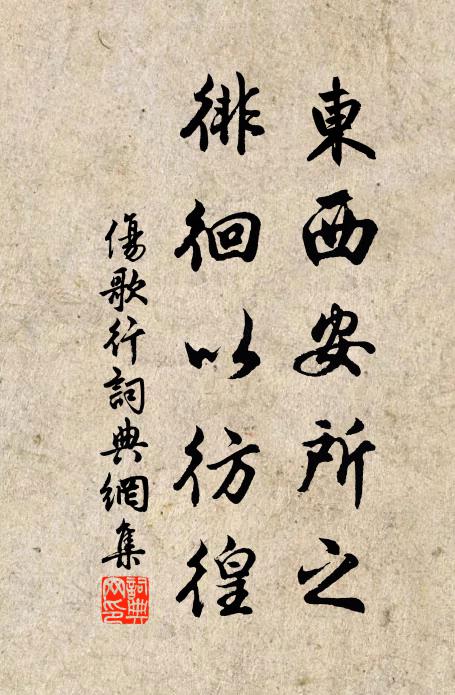 東西安所之
徘徊以彷徨
傷歌行詞典網集
詞典網印